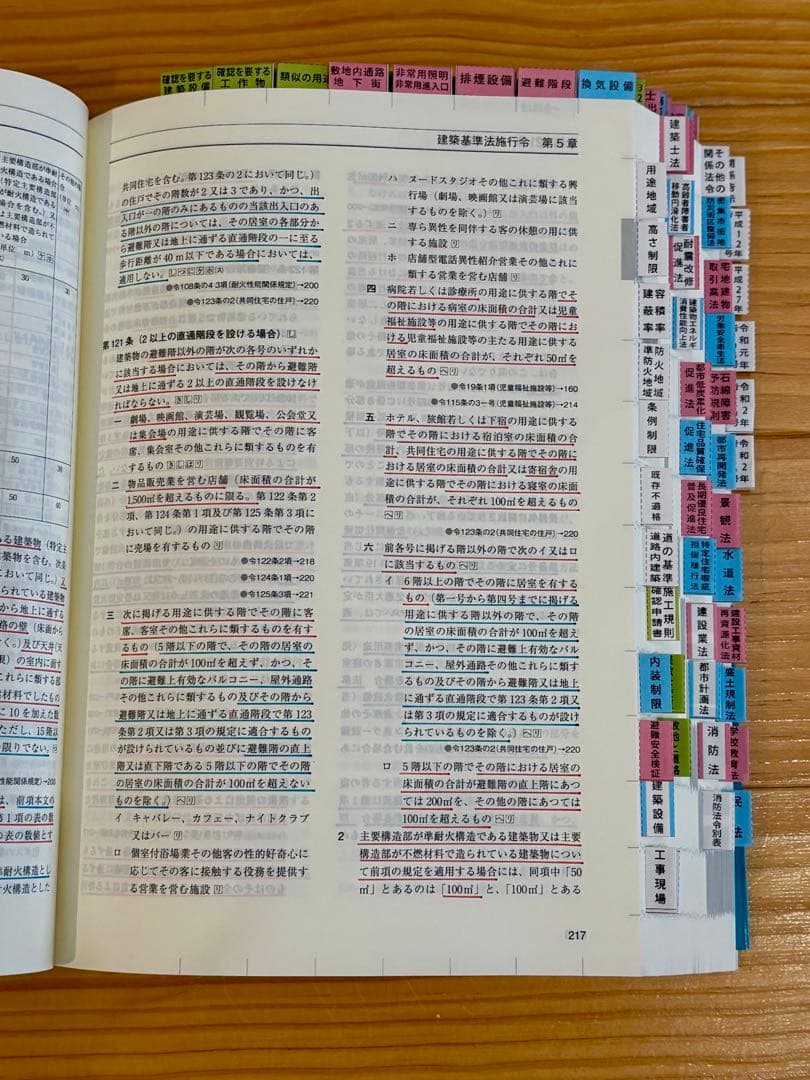 確認を要する
建築設備
確認を要する
工作物
類似の用途
敷地内通路
地下街
非常用照明
非常用進入口
排煙設備
避難階段
換気設備
建築基準法施行令 第5章
共同住宅を含む。第123条の2において同じ。）
の住戸でその階数が2又は3であり、かつ、出
入口が一の階のみにあるものの当該出入口のあ
る階以外の階については、その居室の各部分か
ら避難階又は地上に通ずる直通階段の一に至る
歩行距離が40m以下である場合においては、
適用しない。
●令108条の4 3項(耐火性能関係規定)→200
●令123条の2(共同住宅の住戸)→220
第121条（2以上の直通階段を設ける場合）
建築物の避難階以外の階が次の各号のいずれか
に該当する場合においては、その階から避難階
又は地上に通ずる2以上の直通階段を設けなけ
ればならない。
一 劇場、映画館、演芸場、観覧場、公会堂又
は集会場の用途に供する階でその階に客
席、集会室その他これらに類するものを有
するもの
二 物品販売業を営む店舗（床面積の合計が
1,500㎡を超えるものに限る。第122条第2
項、第124条第1項及び第125条第3項に
おいて同じ。）の用途に供する階でその階
に売場を有するもの
●令122条2項→218
●令124条1項→220
●令125条3項→221
三 次に掲げる用途に供する階でその階に客
席、客室その他これらに類するものを有す
るもの（5階以下の階で、その階の居室の
床面積の合計が100㎡を超えず、かつ、そ
の階に避難上有効なバルコニー、屋外通路
その他これらに類するもの及びその階から
避難階又は地上に通ずる直通階段で第123
条第2項又は第3項の規定に適合するもの
が設けられているもの並びに避難階の直上
階又は直下階である5階以下の階でその階
の居室の床面積の合計が100㎡を超えない
ものを除く。）
イ キャバレー、カフェー、ナイトクラブ
又はバー
ロ 個室付浴場業その他客の性的好奇心に
応じてその客に接触する役務を提供す
る営業を営む施設
ハ ヌードスタジオその他これに類する興
行場（劇場、映画館又は演芸場に該当
するものを除く。）
ニ 専ら異性を同伴する客の休憩の用に供
する施設
ホ 店舗型電話異性紹介営業その他これに
類する営業を営む店舗
四 病院若しくは診療所の用途に供する階でそ
の階における病室の床面積の合計又は児童
福祉施設等の用途に供する階でその階にお
ける児童福祉施設等の主たる用途に供する
居室の床面積の合計が、それぞれ50㎡を超
えるもの
●令19条1項(児童福祉施設等)→160
●令115条の3一号(児童福祉施設等)→214
五 ホテル、旅館若しくは下宿の用途に供する
階でその階における宿泊室の床面積の合
計、共同住宅の用途に供する階でその階に
おける居室の床面積の合計又は寄宿舎の用
途に供する階でその階における寝室の床面
積の合計が、それぞれ100㎡を超えるもの
●令123条の2(共同住宅の住戸)→220
六 前各号に掲げる階以外の階で次のイ又はロ
に該当するもの
イ 6階以上の階でその階に居室を有する
もの（第一号から第四号までに掲げる
用途に供する階以外の階で、その階の
居室の床面積の合計が100㎡を超え
ず、かつ、その階に避難上有効なバル
コニー、屋外通路その他これらに類す
るもの及びその階から避難階又は地上
に通ずる直通階段で第123条第2項又
は第3項の規定に適合するものが設け
られているものを除く。）
●令123条の2(共同住宅の住戸)→220
ロ 5階以下の階でその階における居室の
床面積の合計が避難階の直上階にあつ
ては200㎡を、その他の階にあつては
100㎡を超えるもの
2 主要構造部が準耐火構造である建築物又は主要
構造部が不燃材料で造られている建築物につい
て前項の規定を適用する場合には、同項中「50
㎡」とあるのは「100㎡」と、「100㎡」とある
217
用途地域
高さ制限
容積率
建蔽率
防火地域
準防火地域
条例制限
既存不適格
道の基準
道路内建築
施工規則
確認申請書
内装制限
避難安全検証
建築設備
工事現場
建築士法
高齢者障害者
移動円滑化法
耐震改修
促進法
建築物エネルギ
消費性能向上法
都市低炭素化
促進法
住宅品質確保
促進法
長期優良住宅
普及促進法
特定住宅瑕疵
担保履行法
建設業法
都市計画法
消防法
消防法令別表
その他の
関係法令
密集市街地
防災街区整備法
宅地建物
取引業法
労働安全衛生法
石綿障害
予防規則
都市再開発法
景観法
水道法
建設工事資材
再資源化法
盛土規制法
学校教育法
民法
平成12年
平成27年
令和元年
令和2年
令和2年